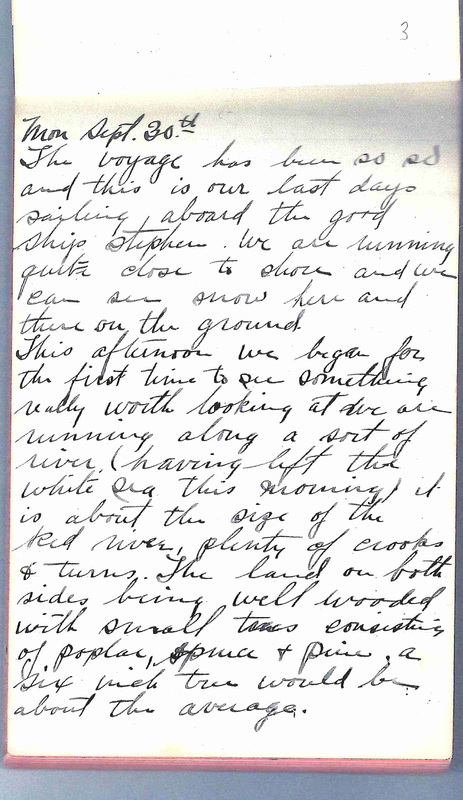 3
Mon Sept. 30.th
The voyage has been so so
and this is our last days
sailing, aboard the good
ship stephen. We are running
quite close to shore and we
can see snow here and
there on the ground.
This afternoon we began for
the first time to see something
really worth looking at &we are
running along a sort of
river, (having left the
white sea this morning) it
is about the size of the
Red river, plenty of crooks
& turns. The land on both
sides being well wooded
with small trees consisting
of poplar, spruce & pine. a
six inch tree would be
about the average.